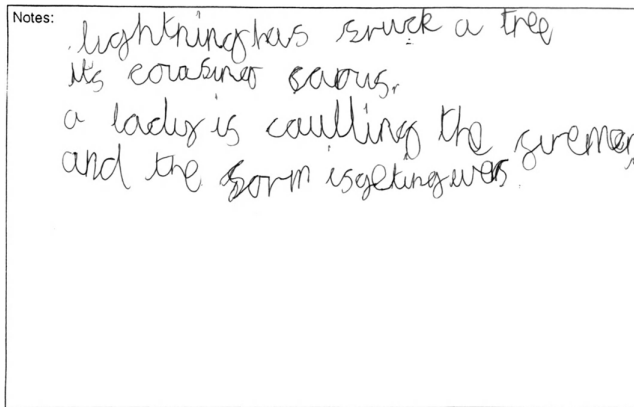 Notes:
lightning has sruck a tree
its corasing saous.
a lady is caulling the firemen
and the sorm is geting wers